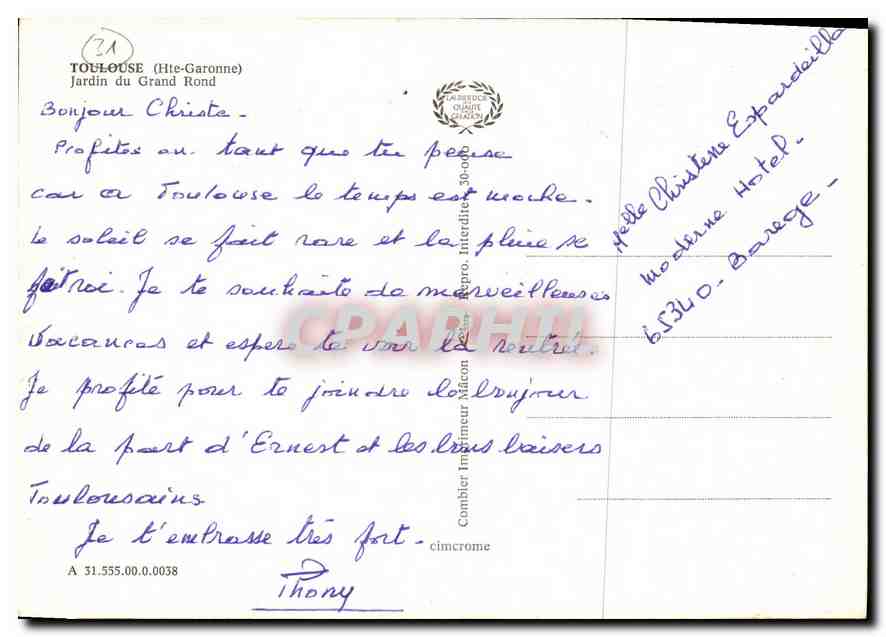 31
TOULOUSE (Hte-Garonne)
Jardin du Grand Rond
LAURÉAT D'OR
DE LA
QUALITÉ
CRÉATION
Bonjour Christe.
Profites en tant que tu peuse
car a Toulouse le temps est moche.
Le soleil se fait rare et la pluie se
fait roi. Je te souhaite de merveilleuses
vacances et espere te voir la rentrée.
Je profite pour te joindre le bonjour
de la part d'Ernest et les bons baisers
Toulousains
Je t'embrasse très fort.
Thony
A 31.555.00.0.0038
cimcrome
Combier Imprimeur Mâcon Repro. Interdite 30-000
Melle Christene Espardeilla
Moderne Hotel.
65340 - Barege -
CPAPHIL